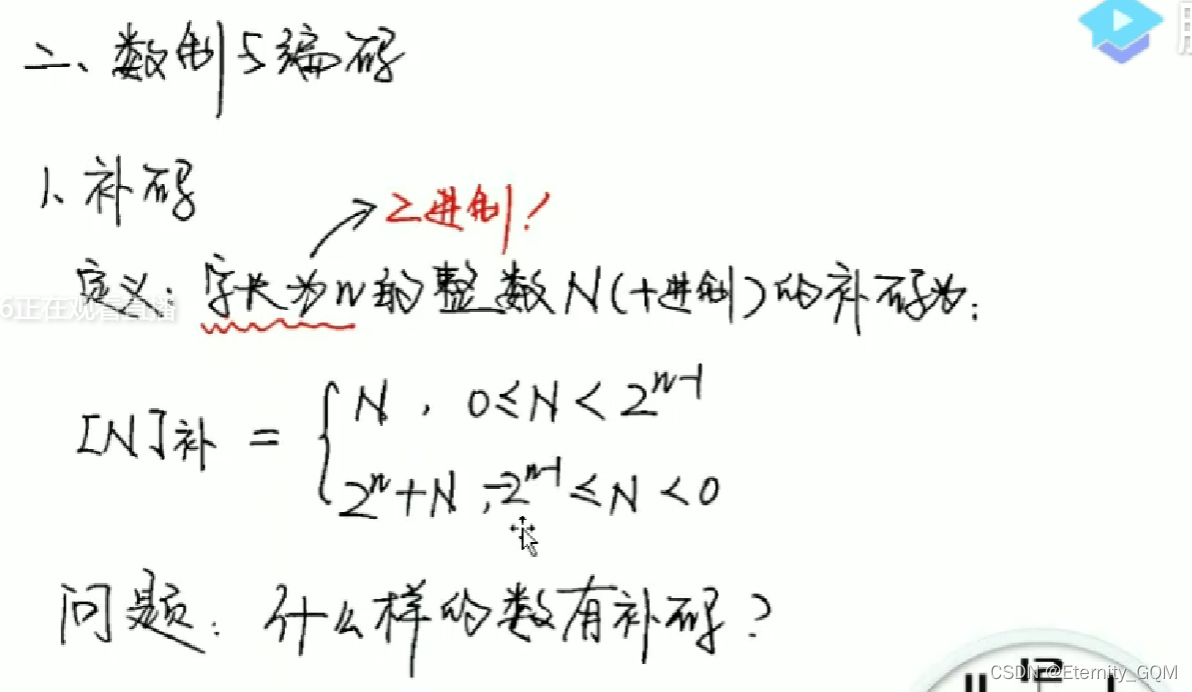 二、数制与编码
1、补码
→二进制!
定义:字长为n的整数N(十进制)的补码为:
6正在观看直播
[N]补 = { N , 0≤N<2^{n-1}
2^n+N , -2^{n-1}≤N<0
问题:什么样的数有补码?
11 12 1
CSDN @Eternity_GQM